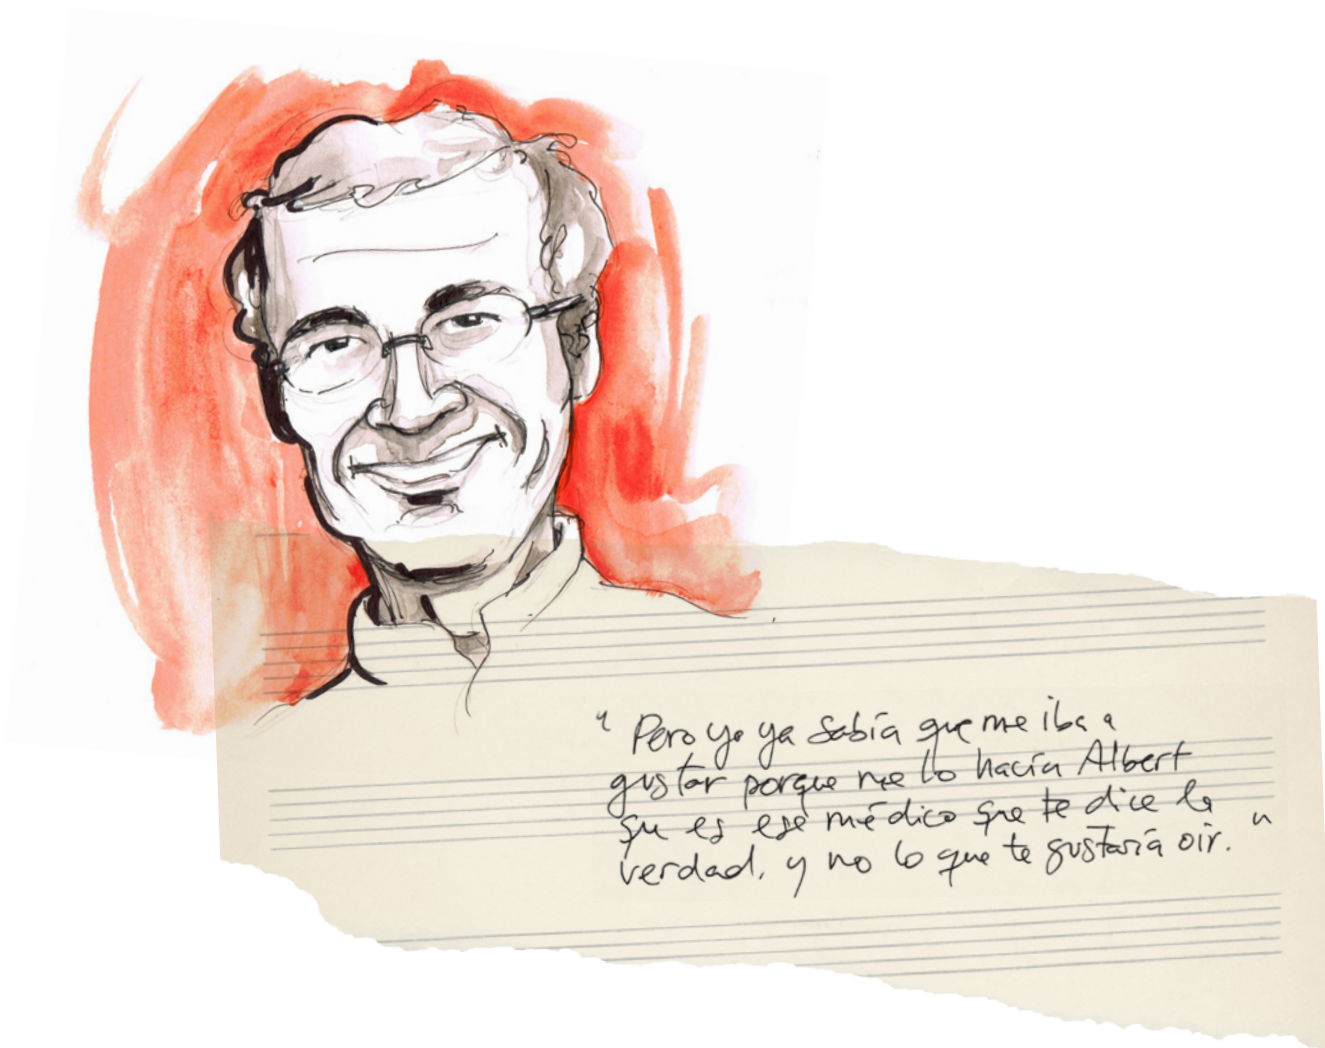 “ Pero yo ya sabía que me iba a
gustar porque me lo hacía Albert
que es ese médico que te dice la
verdad, y no lo que te gustaría oir. ”